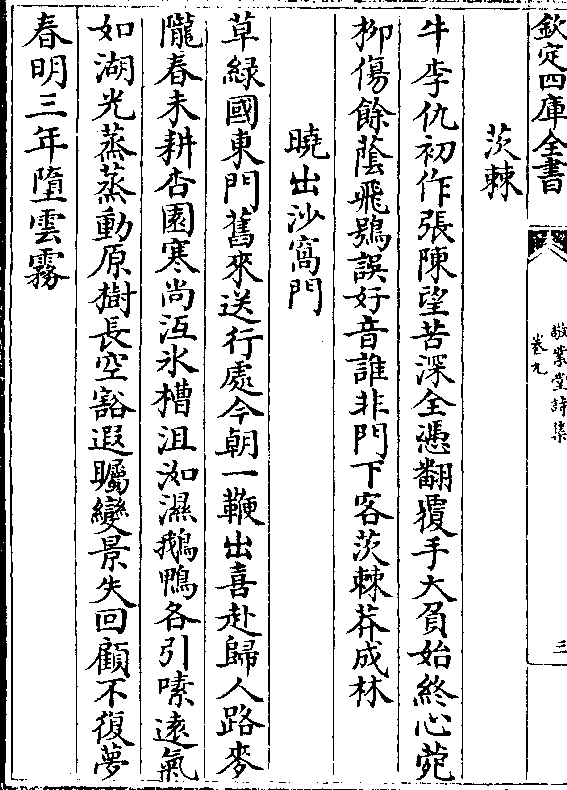 欽定四庫全書
敬業堂詩集
卷九
三
茨棘
牛李仇初作張陳望苦深全憑翻覆手大負始終心菀
柳傷餘蔭飛鴞誤好音誰非門下客茨棘莽成林
曉出沙窩門
草綠國東門舊來送行處今朝一鞭出喜赴歸人路麥
隴春未耕杏園寒尚沍氷槽沮洳濕鵝鴨各引嗉遠氣
如湖光蒸蒸動原樹長空豁遐矚變景失回顧不復夢
春明三年墮雲霧